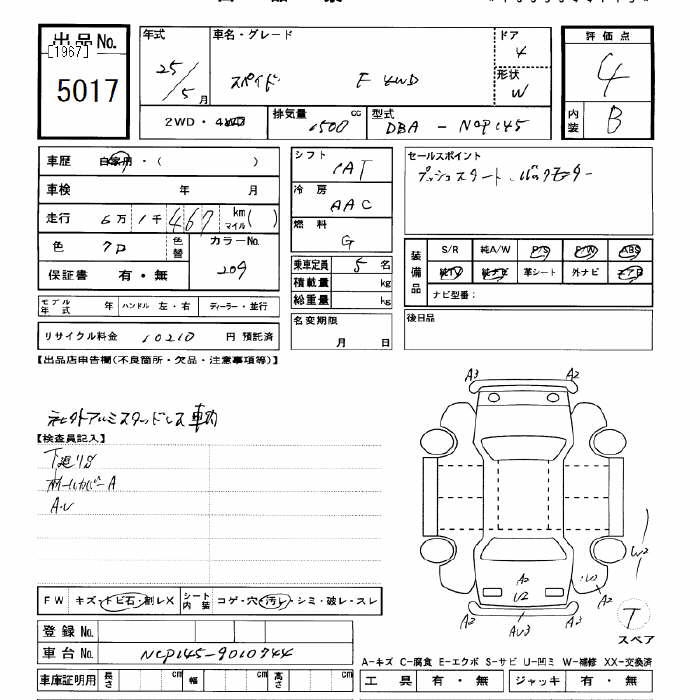 出品No.
[1967]
5017
年式
25/5月
車名・グレード
スペイド F 4WD
ドア
4
形状
W
2WD・4WD
排気量
1500 cc
型式
DBA - NCP145
評価点
4
内装
B
車歴 自家用・( )
車検 年 月
走行 6万 1千 467 km マイル( )
色 クロ 色替
カラーNo.
209
保証書 有・無
モデル年式 年 ハンドル 左・右 ディーラー・並行
リサイクル料金 10210 円 預託済
シフト
IAT
冷房
AAC
燃料
G
乗車定員 5 名
積載量 kg
総重量 kg
名変期限
月 日
セールスポイント
プッシュスタート、バックモニター
装備品
S/R 純A/W P/S P/W ABS
純TV 純ナビ 革シート 外ナビ エアB
ナビ型番：
後日品
【出品店申告欄(不良箇所・欠品・注意事項等)】
アルミスタッドレス車内
【検査員記入】
下廻りS
ホイールカバーA
A・U
A3 A2
W2
A2
U2
A2
A2 AU3 A2
T
スペア
FW キズ・トビ石・削レX シート内装 コゲ・穴・汚レ・シミ・破レ・スレ
登録No.
車台No. NCP145-9010744
車庫証明用 長さ cm 幅 cm 高さ cm
A-キズ C-腐食 E-エクボ S-サビ U-凹ミ W-補修 XX-交換済
工具 有・無 ジャッキ 有・無